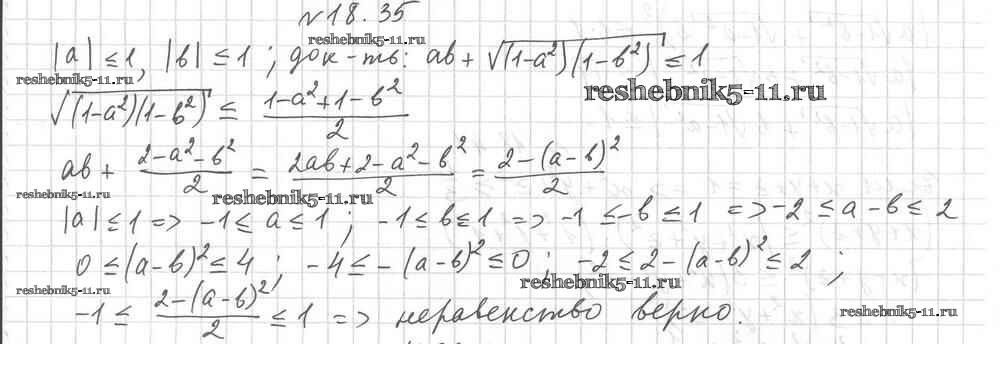 №18.35
reshebnik5-11.ru
|a| ≤ 1, |b| ≤ 1 ; док-ть: ab + √((1-a²)(1-b²)) ≤ 1
reshebnik5-11.ru
reshebnik5-11.ru
√((1-a²)(1-b²)) ≤ (1-a²+1-b²)/2
ab + (2-a²-b²)/2 = (2ab+2-a²-b²)/2 = (2-(a-b)²)/2
reshebnik5-11.ru
reshebnik5-11.ru
|a| ≤ 1 => -1 ≤ a ≤ 1 ; -1 ≤ b ≤ 1 => -1 ≤ -b ≤ 1 => -2 ≤ a-b ≤ 2
0 ≤ (a-b)² ≤ 4 ; -4 ≤ -(a-b)² ≤ 0 ; -2 ≤ 2-(a-b)² ≤ 2 ;
reshebnik5-11.ru
reshebnik5-11.ru
-1 ≤ (2-(a-b)²)/2 ≤ 1 => неравенство верно.
reshebnik5-11.ru